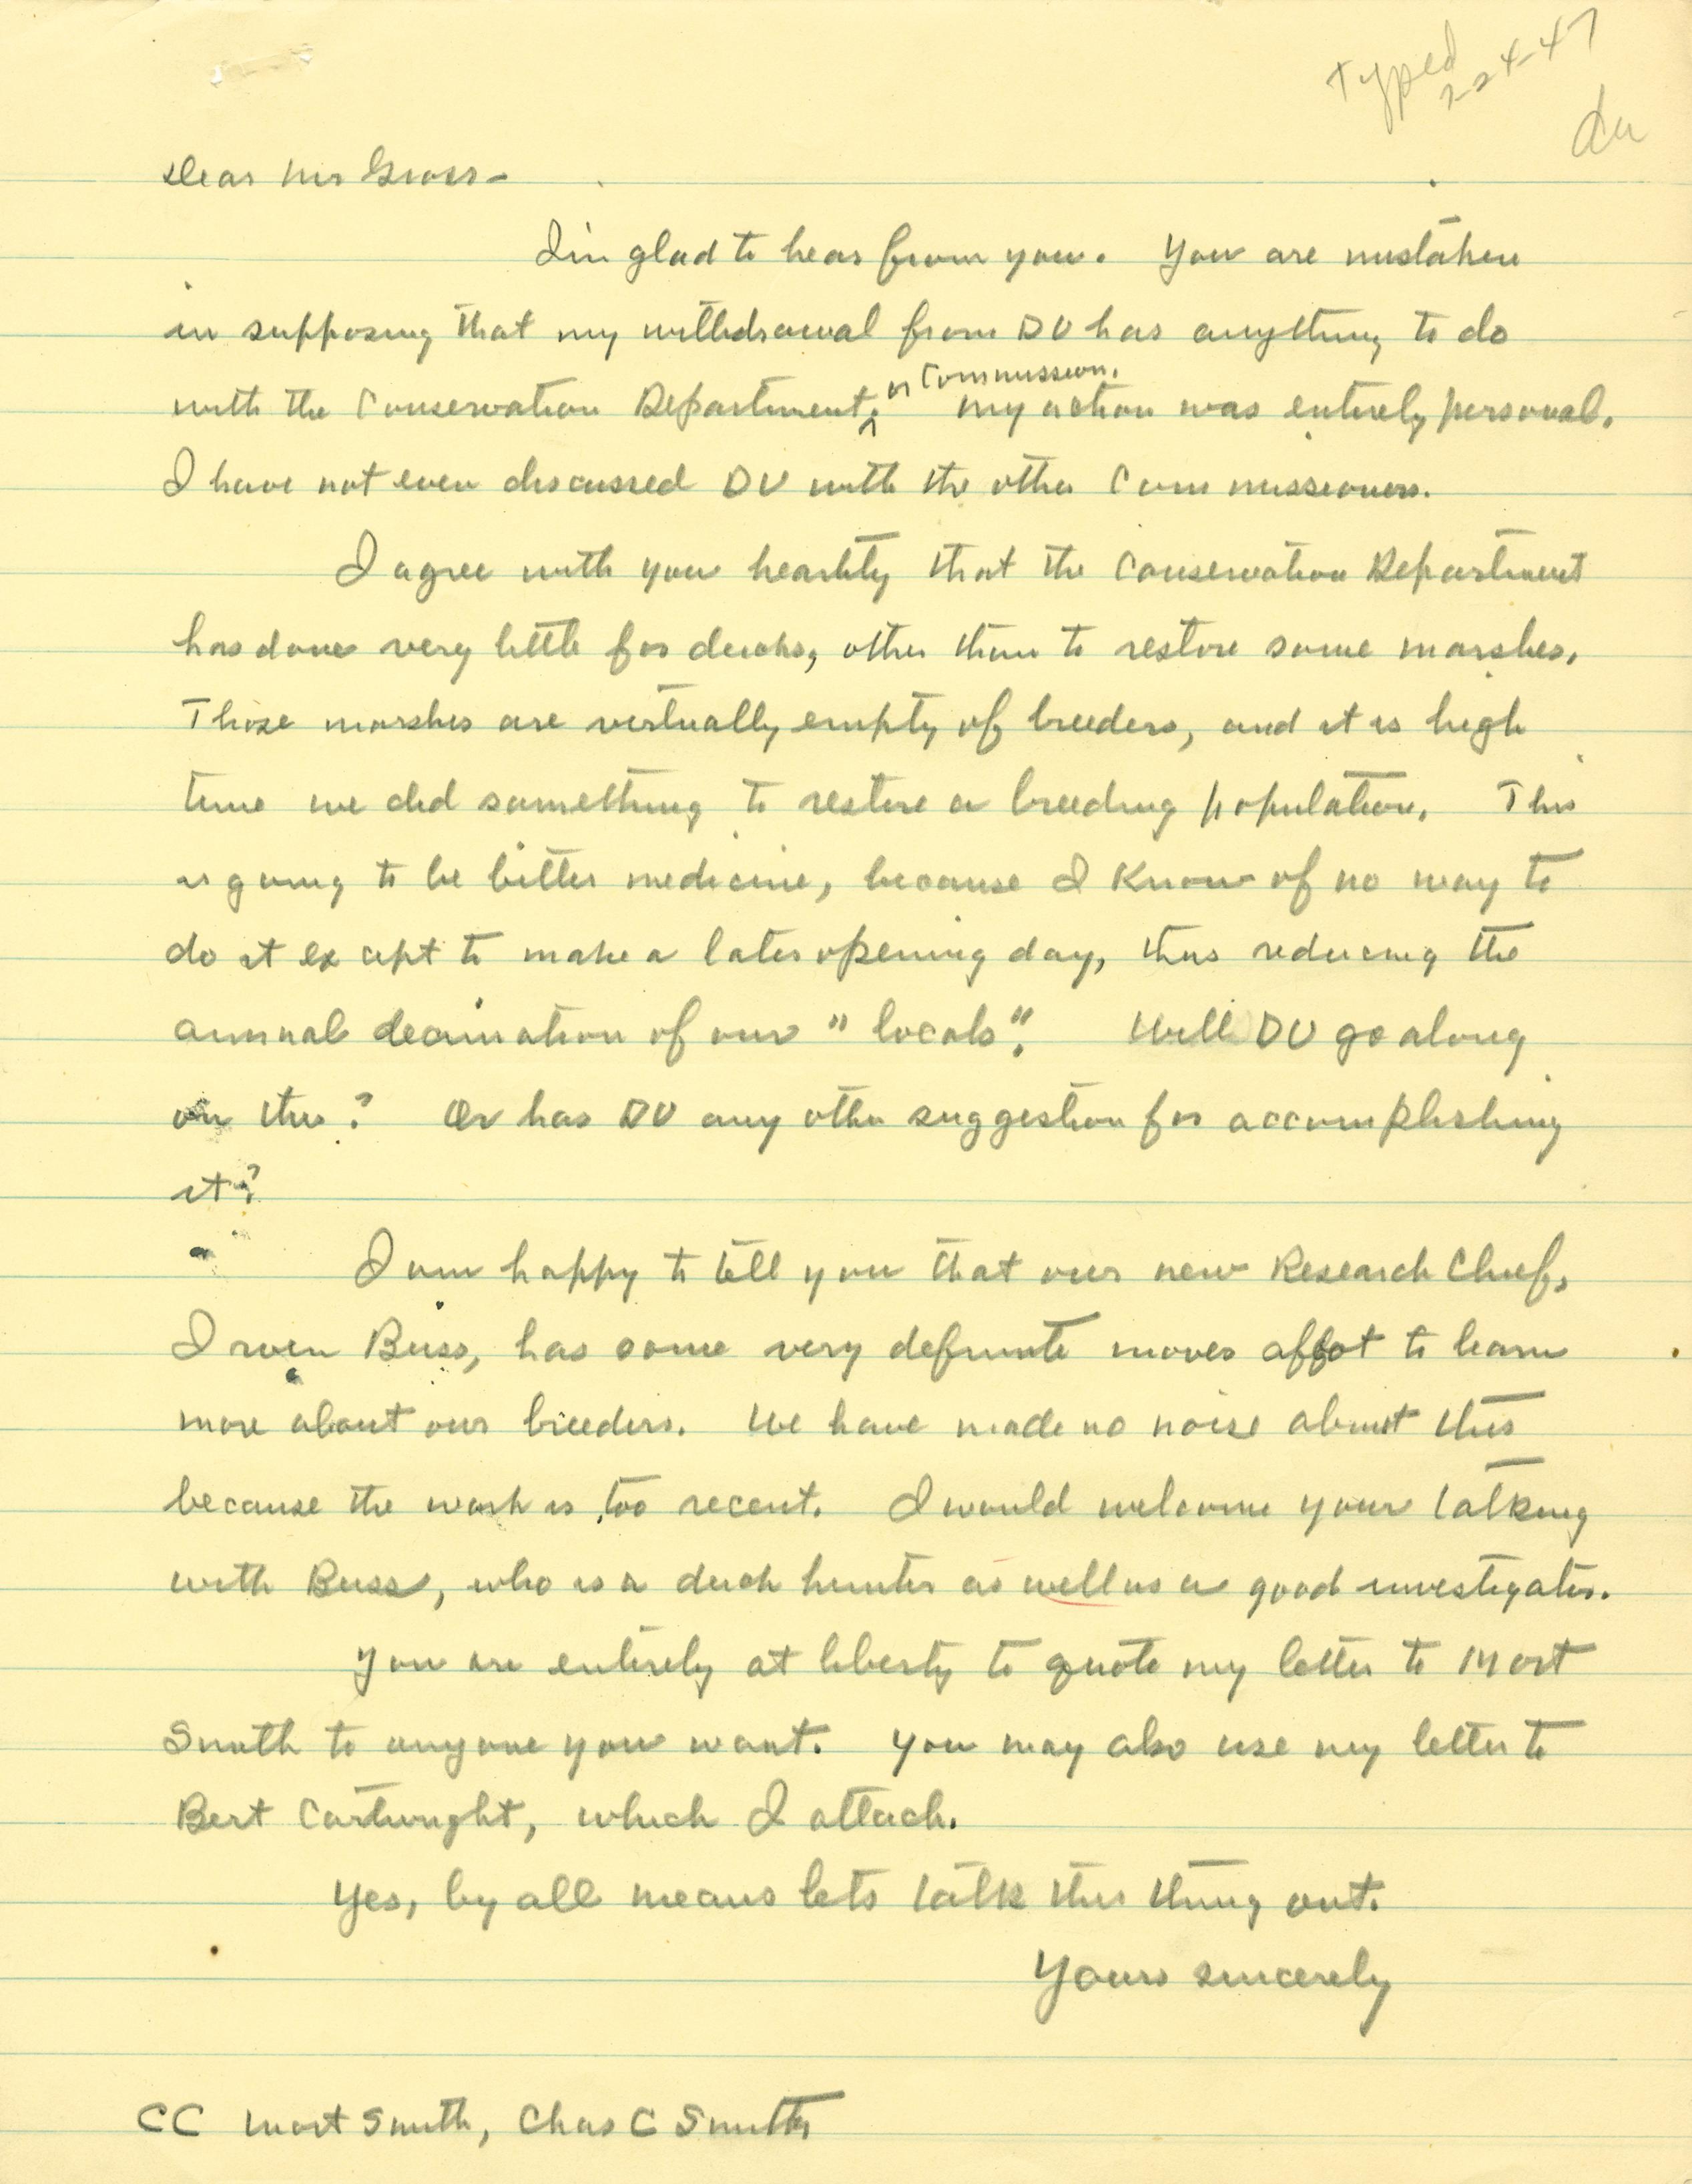 Typed
2-24-47
du
Dear Mr Gross-
I'm glad to hear from you. You are mistaken
in supposing that my withdrawal from DU has anything to do
with the Conservation Department, or Commission. My action was entirely personal.
I have not even discussed DU with the other Commissioners.
I agree with you heartily that the Conservation Department
has done very little for ducks, other than to restore some marshes.
Those marshes are virtually empty of breeders, and it is high
time we did something to restore a breeding population. This
is going to be bitter medicine, because I know of no way to
do it except to make a later opening day, thus reducing the
annual decimation of our "locals". Will DU go along
on this? Or has DU any other suggestion for accomplishing
it?
I am happy to tell you that our new Research Chief,
Irven Buss, has some very definite moves afoot to learn
more about our breeders. We have made no noise about this
because the work is too recent. I would welcome your talking
with Buss, who is a duck hunter as well as a good investigator.
You are entirely at liberty to quote my letter to Mort
Smith to anyone you want. You may also use my letter to
Bert Cartwright, which I attach.
Yes, by all means lets talk this thing out.
Yours sincerely
CC Mort Smith, Chas C Smith